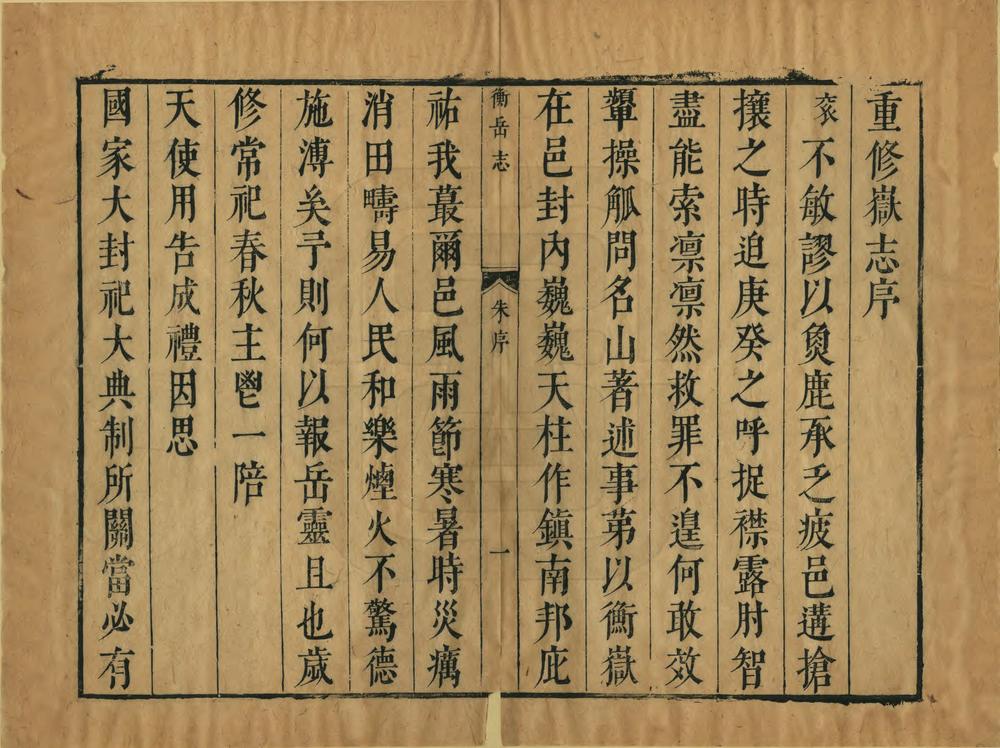 重修嶽志序
衮不敏謬以㚟鹿承乏疲邑遘搶
攘之時迫庚癸之呼捉襟露肘智
盡能索凛凛然救罪不遑何敢效
顰操觚問名山著述事苐以衡嶽
在邑封內巍巍天柱作鎮南邦庇
衡岳志
朱序
一
祐我蕞爾邑風雨節寒暑時災癘
消田疇易人民和樂煙火不驚德
施溥矣予則何以報岳靈且也歲
修常祀春秋主鬯一陪
天使用告成禮因思
國家大封祀大典制所關當必有